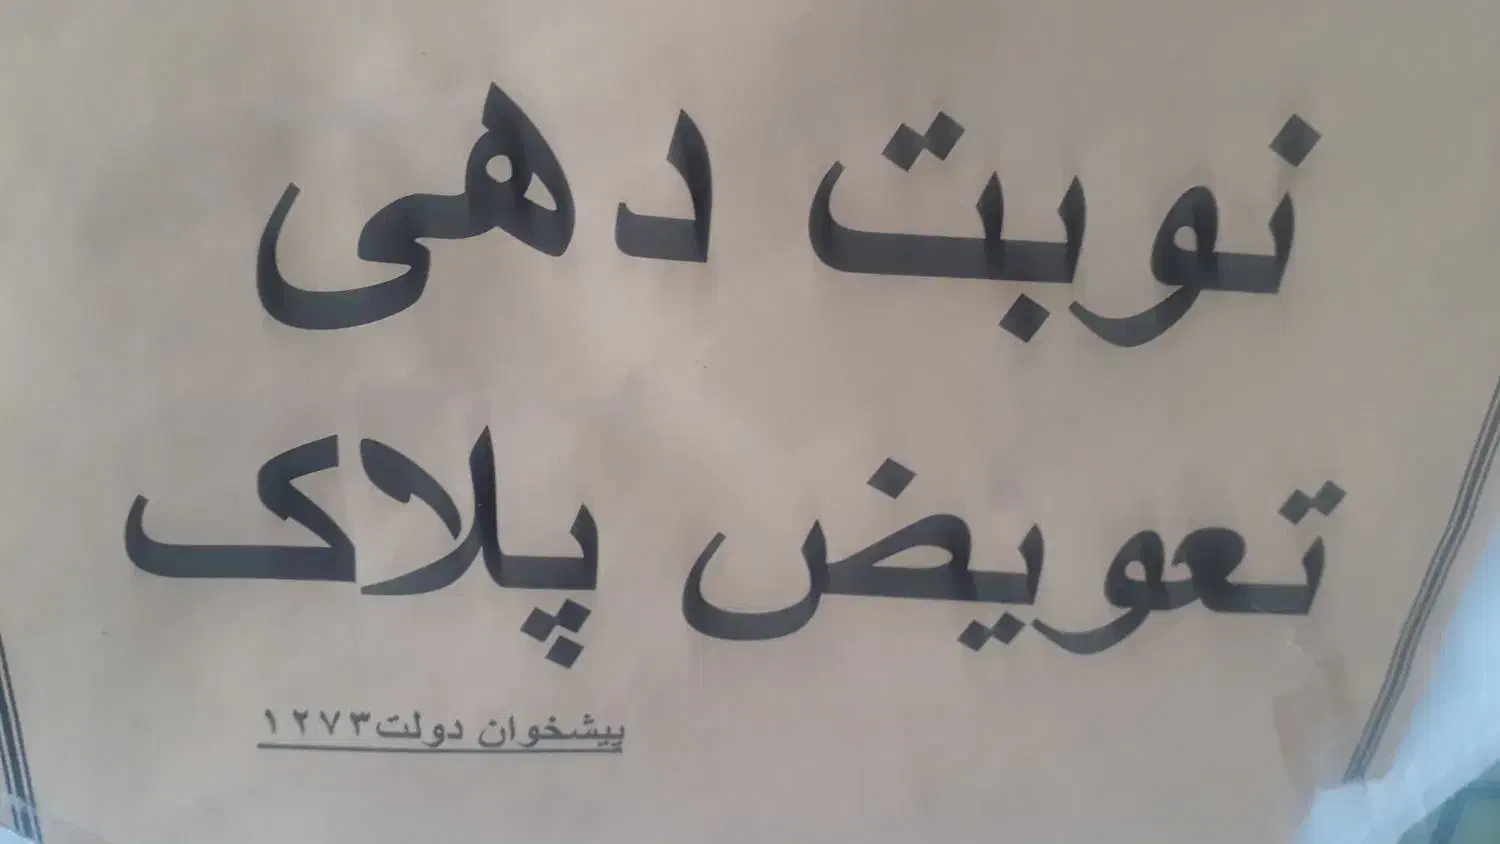 نوبت دهی
تعویض پلاک
پیشخوان دولت۱۲۷۳